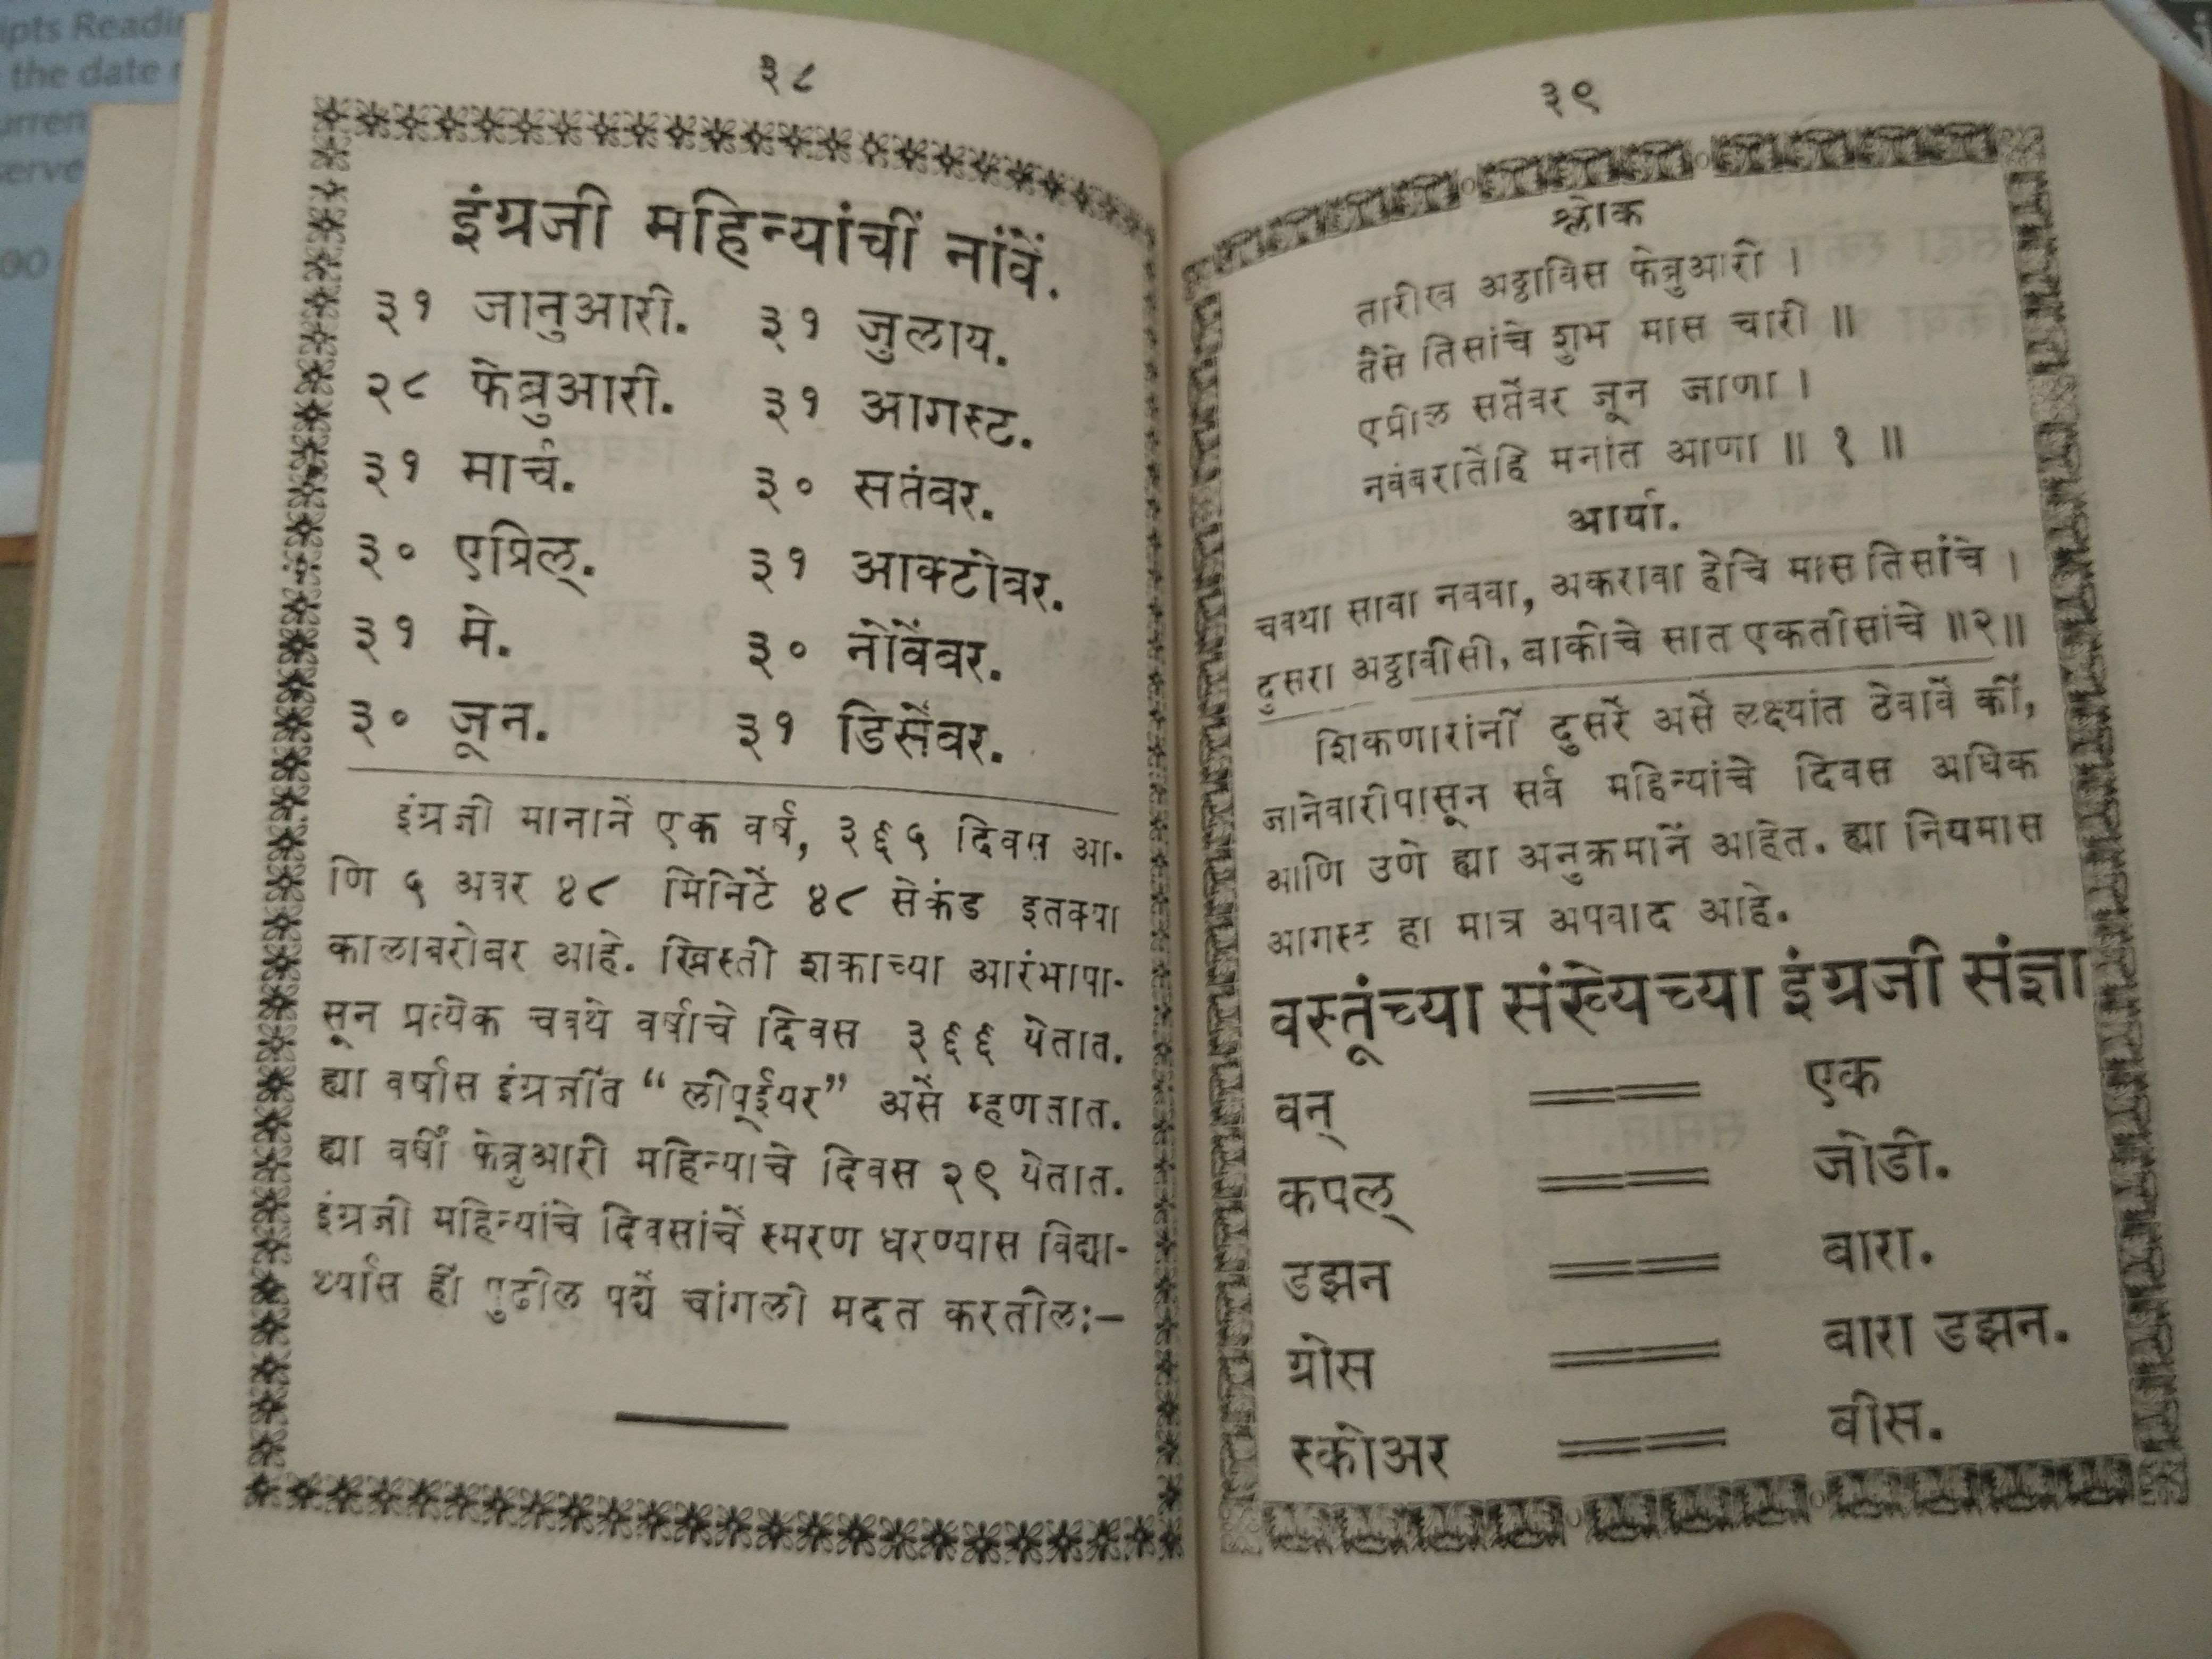 ipts Readi
the date
urren
serve
३८
इंग्रजी महिन्यांचीं नांवें.
३१ जानुआरी. ३१ जुलाय.
२८ फेब्रुआरी. ३१ आगस्ट.
३१ मार्च. ३० सतंबर.
३० एप्रिल्. ३१ आक्टोबर.
३१ मे. ३० नोंवेंबर.
३० जून. ३१ डिसेंबर.
इंग्रजी मानानें एक वर्ष, ३६५ दिवस आ-
णि ५ अवर ४८ मिनिटें ४८ सेकंड इतक्या
कालाबरोबर आहे. ख्रिस्ती शकाच्या आरंभापा-
सून प्रत्येक चवथे वर्षाचे दिवस ३६६ येतात.
ह्या वर्षास इंग्रजींत “ लीप्ईयर” असें म्हणतात.
ह्या वर्षीं फेब्रुआरी महिन्याचे दिवस २९ येतात.
इंग्रजी महिन्यांचे दिवसांचें स्मरण धरण्यास विद्या-
र्थ्यास हीं पुढील पद्यें चांगली मदत करतील:—
३९
श्लोक
तारीख अठ्ठाविस फेब्रुआरी ।
तैसे तिसांचे शुभ मास चारी ॥
एप्रील सप्तेंबर जून जाणा ।
नवंबरातेंहि मनांत आणा ॥ १ ॥
आर्या.
चवथा सावा नववा, अकरावा हेचि मास तिसांचे ।
दुसरा अठ्ठावीसी, बाकीचे सात एकतीसांचे ॥२॥
शिकणारांनीं दुसरें असें लक्ष्यांत ठेवावें कीं,
जानेवारीपासून सर्व महिन्यांचे दिवस अधिक
आणि उणे ह्या अनुक्रमानें आहेत. ह्या नियमास
आगस्ट हा मात्र अपवाद आहे.
वस्तूंच्या संख्येच्या इंग्रजी संज्ञा
वन् == एक
कपल् == जोडी.
डझन == बारा.
ग्रोस == बारा डझन.
स्कोअर == वीस.